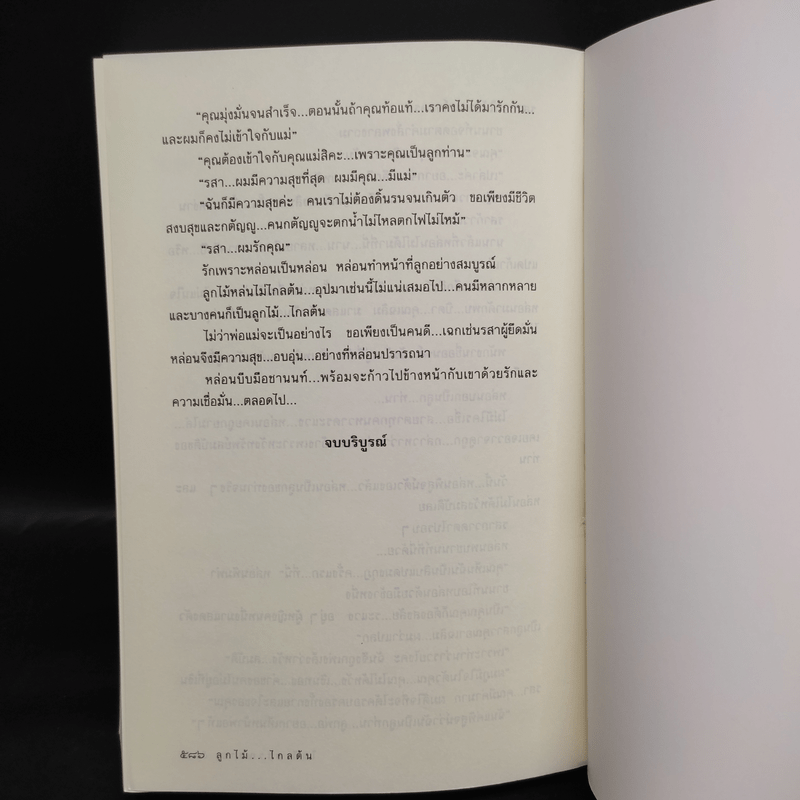 "คุณมุ่งมั่นจนสำเร็จ...ตอนนั้นถ้าคุณท้อแท้...เราคงไม่ได้มารักกัน...
และผมก็คงไม่เข้าใจกับแม่"
"คุณต้องเข้าใจกับคุณแม่สิคะ...เพราะคุณเป็นลูกท่าน"
"รสา...ผมมีความสุขที่สุด ผมมีคุณ...มีแม่"
"ฉันก็มีความสุขค่ะ คนเราไม่ต้องดิ้นรนจนเกินตัว ขอเพียงมีชีวิต
สงบสุขและกตัญญู...คนกตัญญูจะตกน้ำไม่ไหลตกไฟไม่ไหม้"
"รสา...ผมรักคุณ"
รักเพราะหล่อนเป็นหล่อน หล่อนทำหน้าที่ลูกอย่างสมบูรณ์
ลูกไม้หล่นไม่ไกลต้น...อุปมาเช่นนี้ไม่แน่เสมอไป...คนมีหลากหลาย
และบางคนก็เป็นลูกไม้...ไกลต้น
ไม่ว่าพ่อแม่จะเป็นอย่างไร ขอเพียงเป็นคนดี...เฉกเช่นรสาผู้ยึดมั่น
หล่อนจึงมีความสุข...อบอุ่น...อย่างที่หล่อนปรารถนา
หล่อนบีบมือชานนท์...พร้อมจะก้าวไปข้างหน้ากับเขาด้วยรักและ
ความเชื่อมั่น...ตลอดไป...
จบบริบูรณ์
๕๘๖ ลูกไม้...ไกลต้น